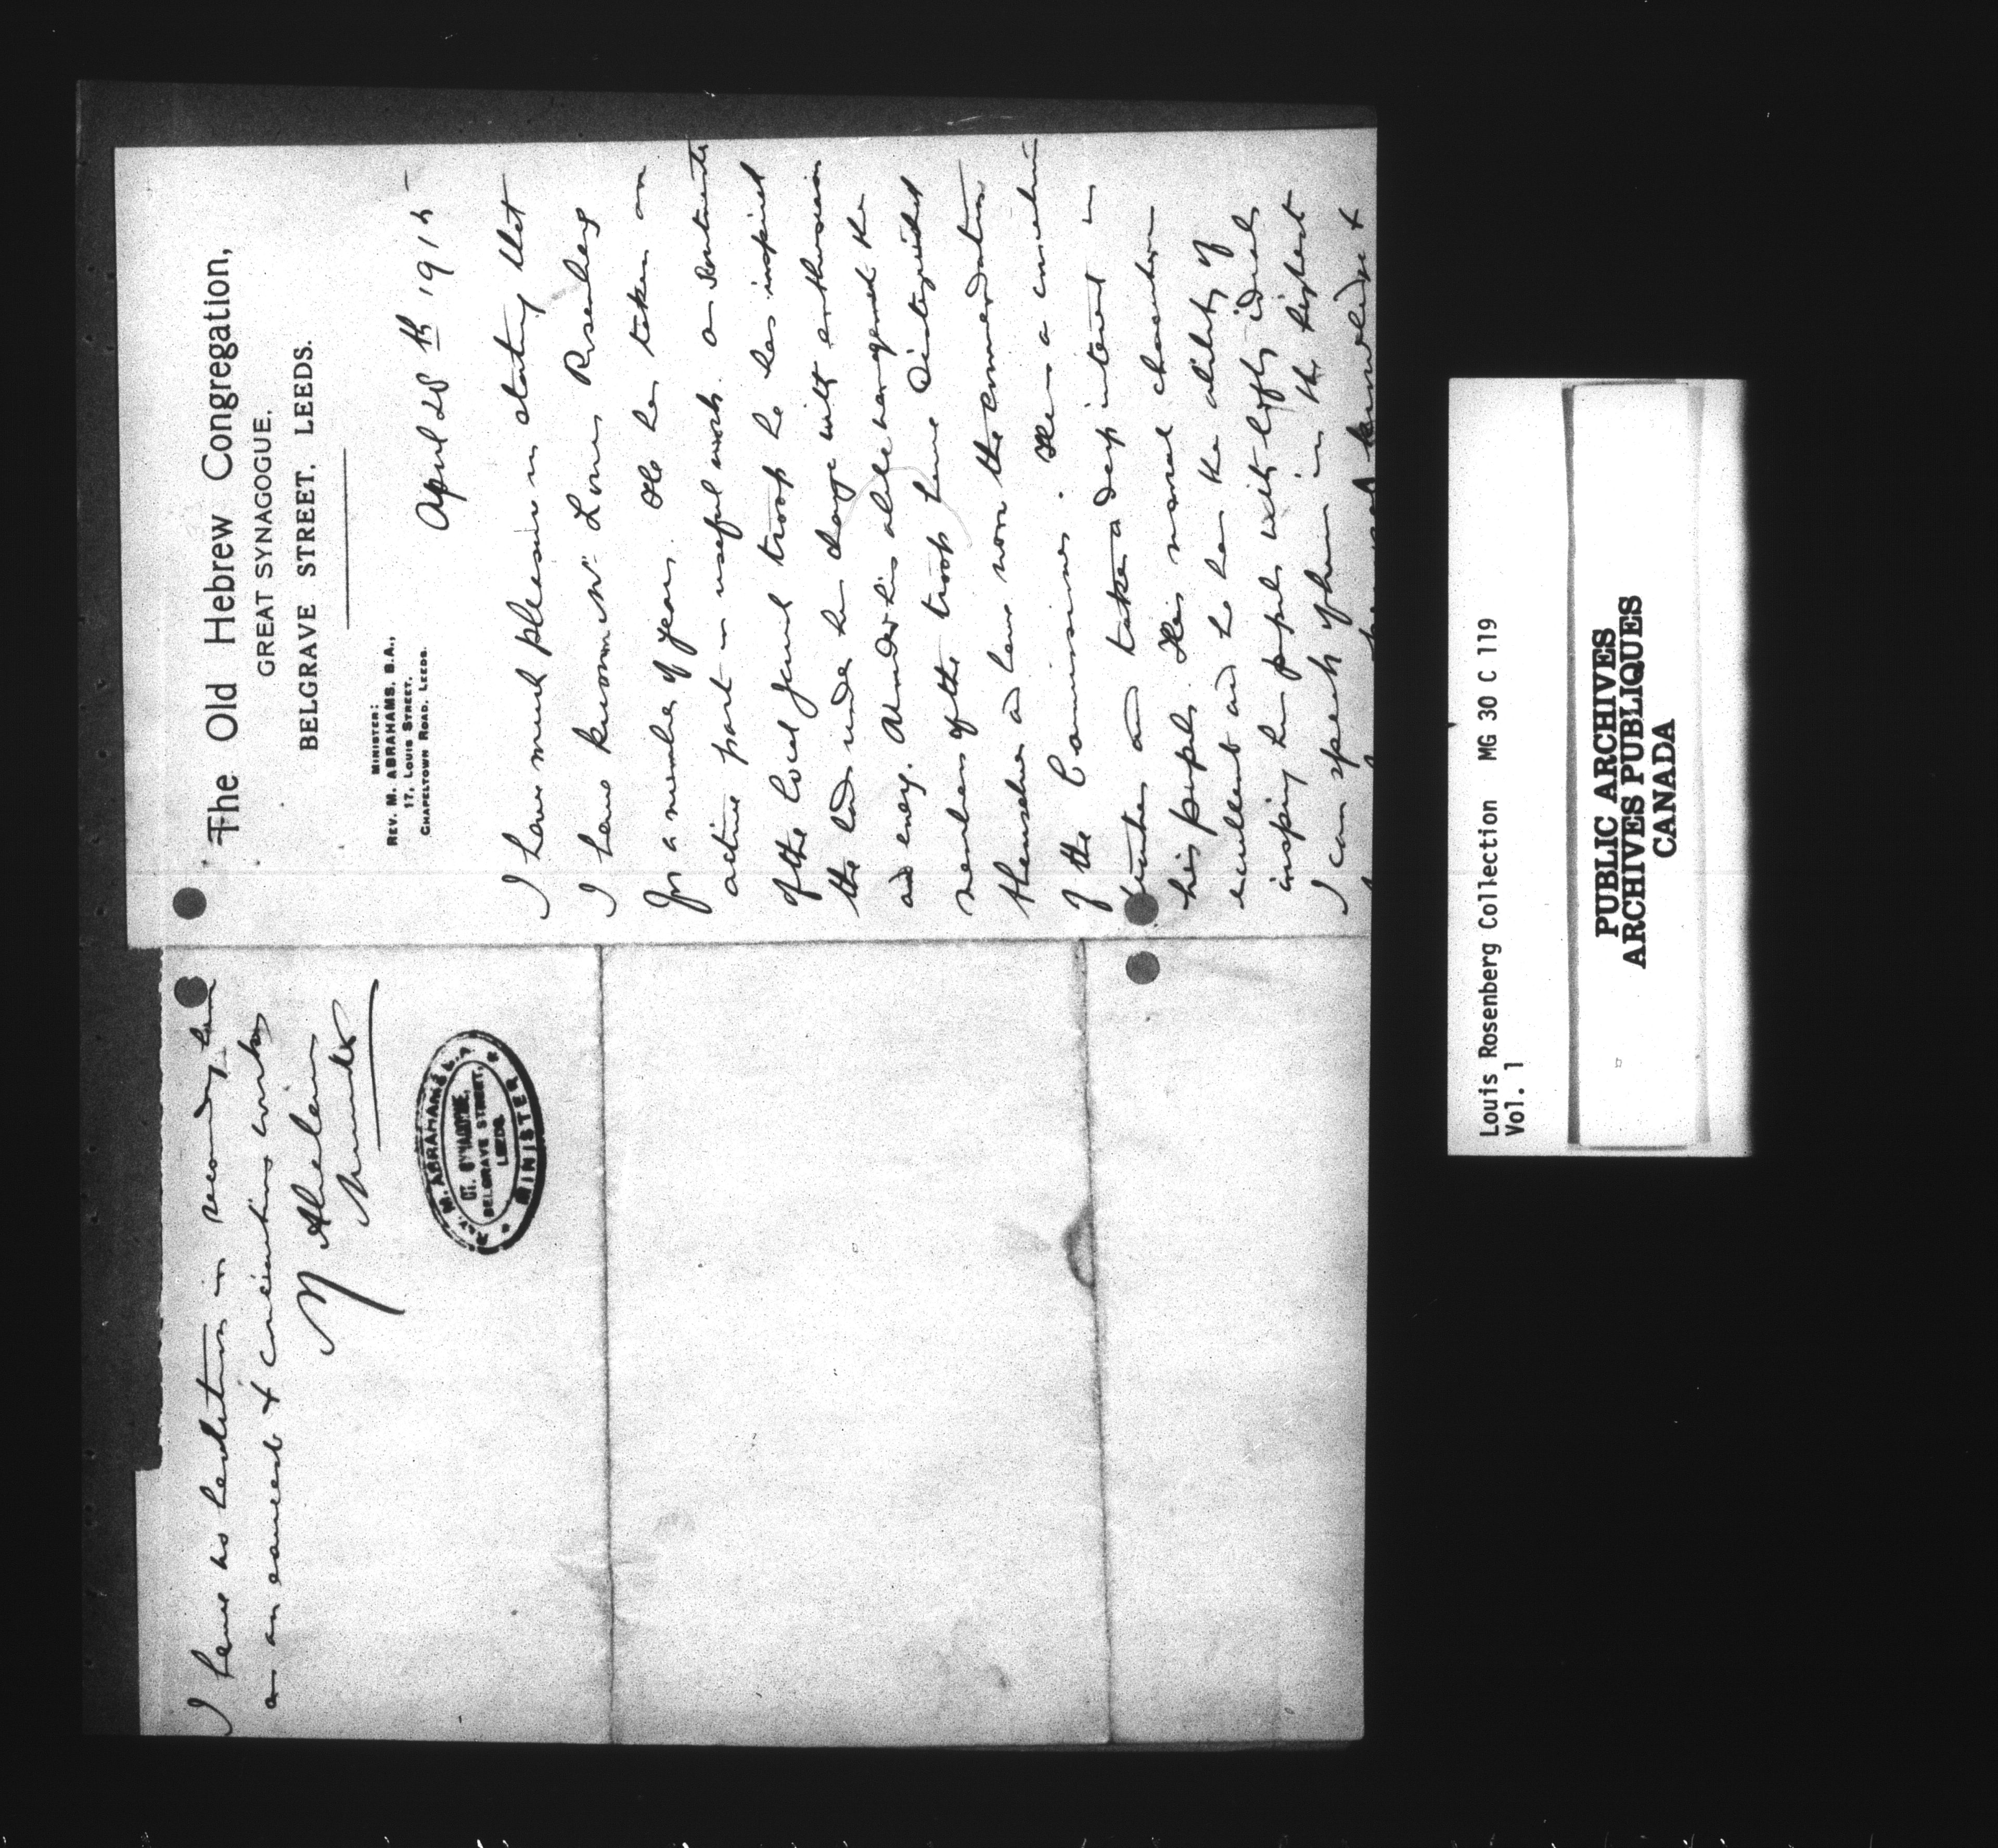 The Old Hebrew Congregation,
GREAT SYNAGOGUE.
BELGRAVE STREET, LEEDS.
MINISTER:
REV. M. ABRAHAMS, B.A.,
17, LOUIS STREET,
CHAPELTOWN ROAD, LEEDS.
April 28th 1915
I have much pleasure in stating that
I have known Mr. Louis Rosenberg
for a number of years. He has taken an
active part in useful work. As Scoutmaster
of the local Jewish troop he has inspired
the lads under his charge with enthusiasm
and energy. Under his able management the
members of the troop have distinguished
themselves and have won the commendation
of the Commissioner. He is a conscientious
teacher and takes a deep interest in
his pupils. His moral character is
excellent and he has the ability of
inspiring his pupils with lofty ideals
I can speak of him in the highest
personal knowledge &
I have no hesitation in recommending him
as an earnest & conscientious worker
M Abrahams
Minister
REV. M. ABRAHAMS B.A.
GT. SYNAGOGUE,
BELGRAVE STREET,
LEEDS
MINISTER
Louis Rosenberg Collection MG 30 C 119
Vol. 1
PUBLIC ARCHIVES
ARCHIVES PUBLIQUES
CANADA